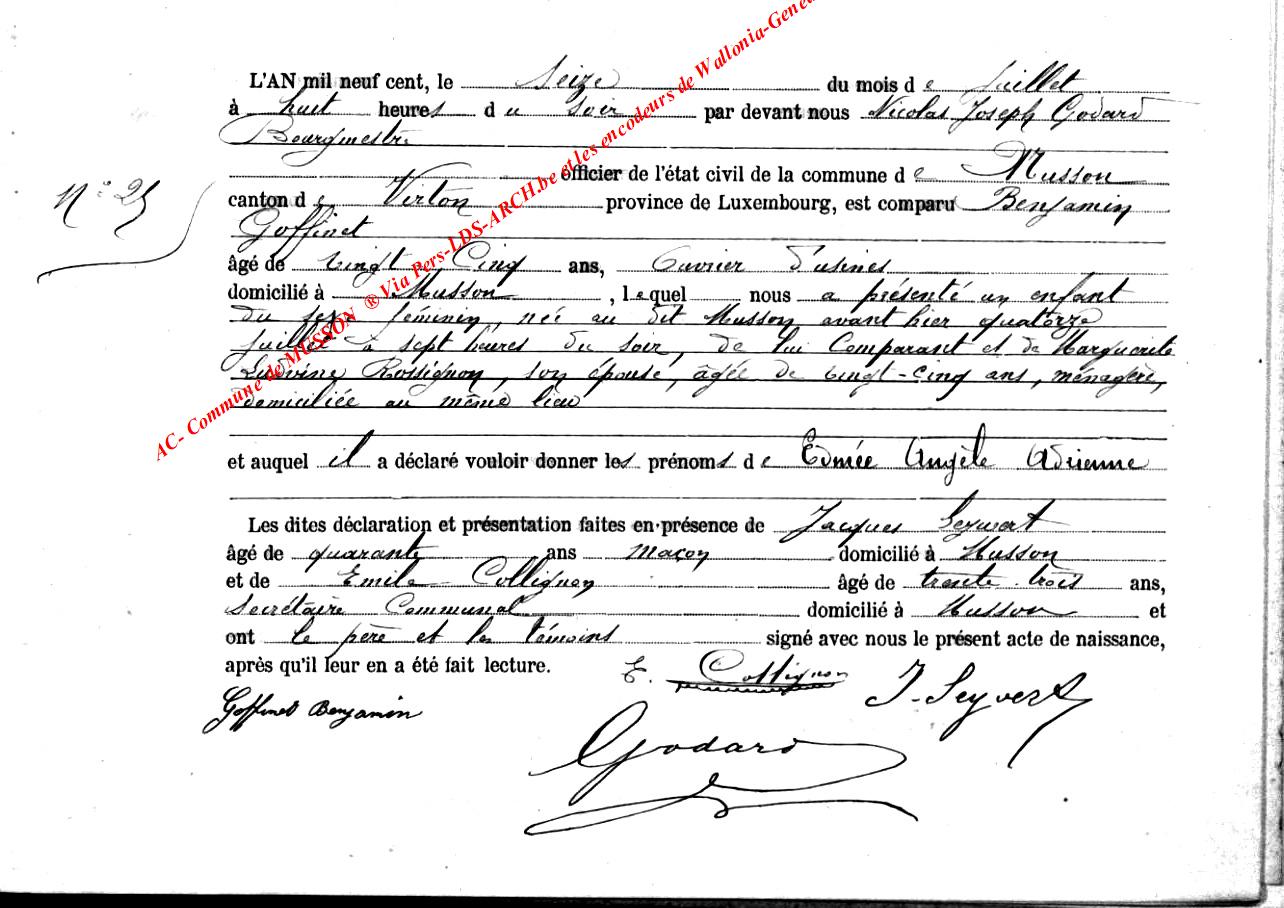 AC- Commune de MUSSON ® Via Pers-LDS-ARCH.be et les encodeurs de Wallonia-Genea
L'AN mil neuf cent, le Seize du mois de Juillet
à huit heures du soir par devant nous Nicolas Joseph Godard
Bourgmestre
officier de l'état civil de la commune de Musson
N° 25
canton de Virton province de Luxembourg, est comparu Benjamin
Goffinet
âgé de vingt Cinq ans, Ouvrier d'usines
domicilié à Musson, lequel nous a présenté un enfant
du sexe féminin, née au dit Musson avant hier quatorze
juillet à sept heures du soir, de lui Comparant et de Marguerite
Ludivine Rossignon, son épouse, âgée de vingt-cinq ans, ménagère,
domiciliée au même lieu
et auquel il a déclaré vouloir donner les prénoms de Edmée Angèle Adrienne
Les dites déclaration et présentation faites en présence de Jacques Seywert
âgé de quarante ans maçon domicilié à Musson
et de Emile Collignon âgé de trente trois ans,
Secrétaire Communal domicilié à Musson et
ont le père et les témoins signé avec nous le présent acte de naissance,
après qu'il leur en a été fait lecture.
E. Collignon
J. Seyvert
Goffinet Benjamin
Godard